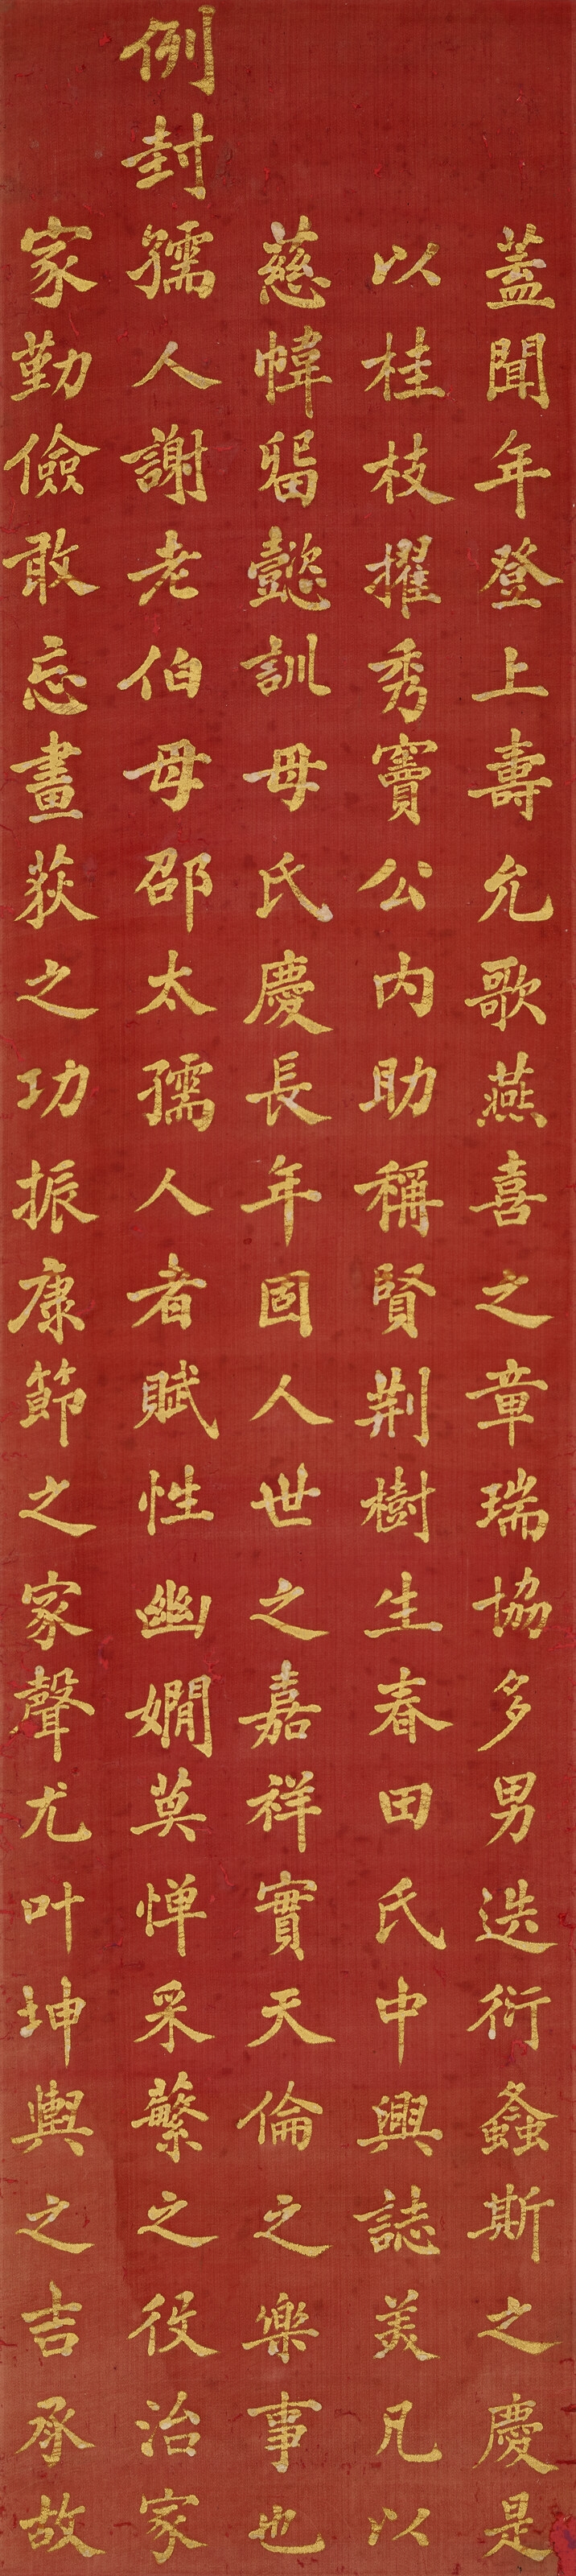 蓋聞年登上壽允歌燕喜之章瑞協多男迭衍螽斯之慶是
以桂枝擢秀竇公內助稱賢荆樹生春田氏中興誌美凡以
慈幃留懿訓母氏慶長年固人世之嘉祥實天倫之樂事也
例封孺人謝老伯母邵太孺人者賦性幽嫺莫惮采蘩之役治家
家勤儉敢忘畫荻之功振康節之家聲尤叶坤輿之吉承故